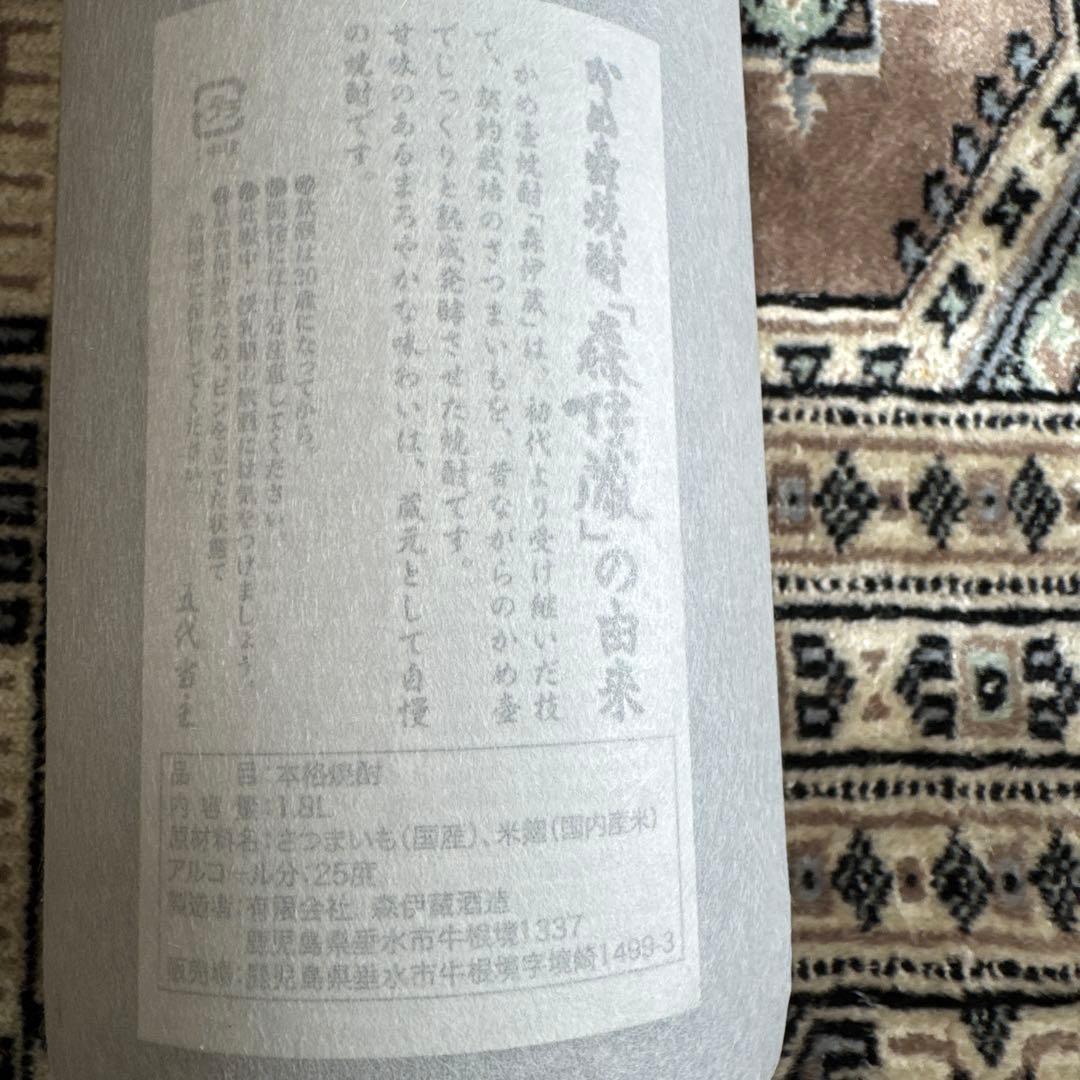 かめ壷焼酎「森伊蔵」の由来
かめ壷焼酎「森伊蔵」は、初代より受け継いだ技
で、契約栽培のさつまいもを、昔ながらのかめ壷
でじっくりと熟成発酵させた焼酎です。
甘味のあるまろやかな味わいは、蔵元として自慢
の焼酎です。
飲酒は20歳になってから。
開栓には十分注意してください。
妊娠中、授乳期の飲酒には気をつけましょう。
ため、ビンを立てた状態で
してください
五代当主
品目:本格焼酎
内容量:1.8L
原材料名:さつまいも(国産)、米麹(国内産米)
アルコール分:25度
製造者:有限会社 森伊蔵酒造
鹿児島県垂水市牛根境1337
販売場:鹿児島県垂水市牛根境字境崎1499-3